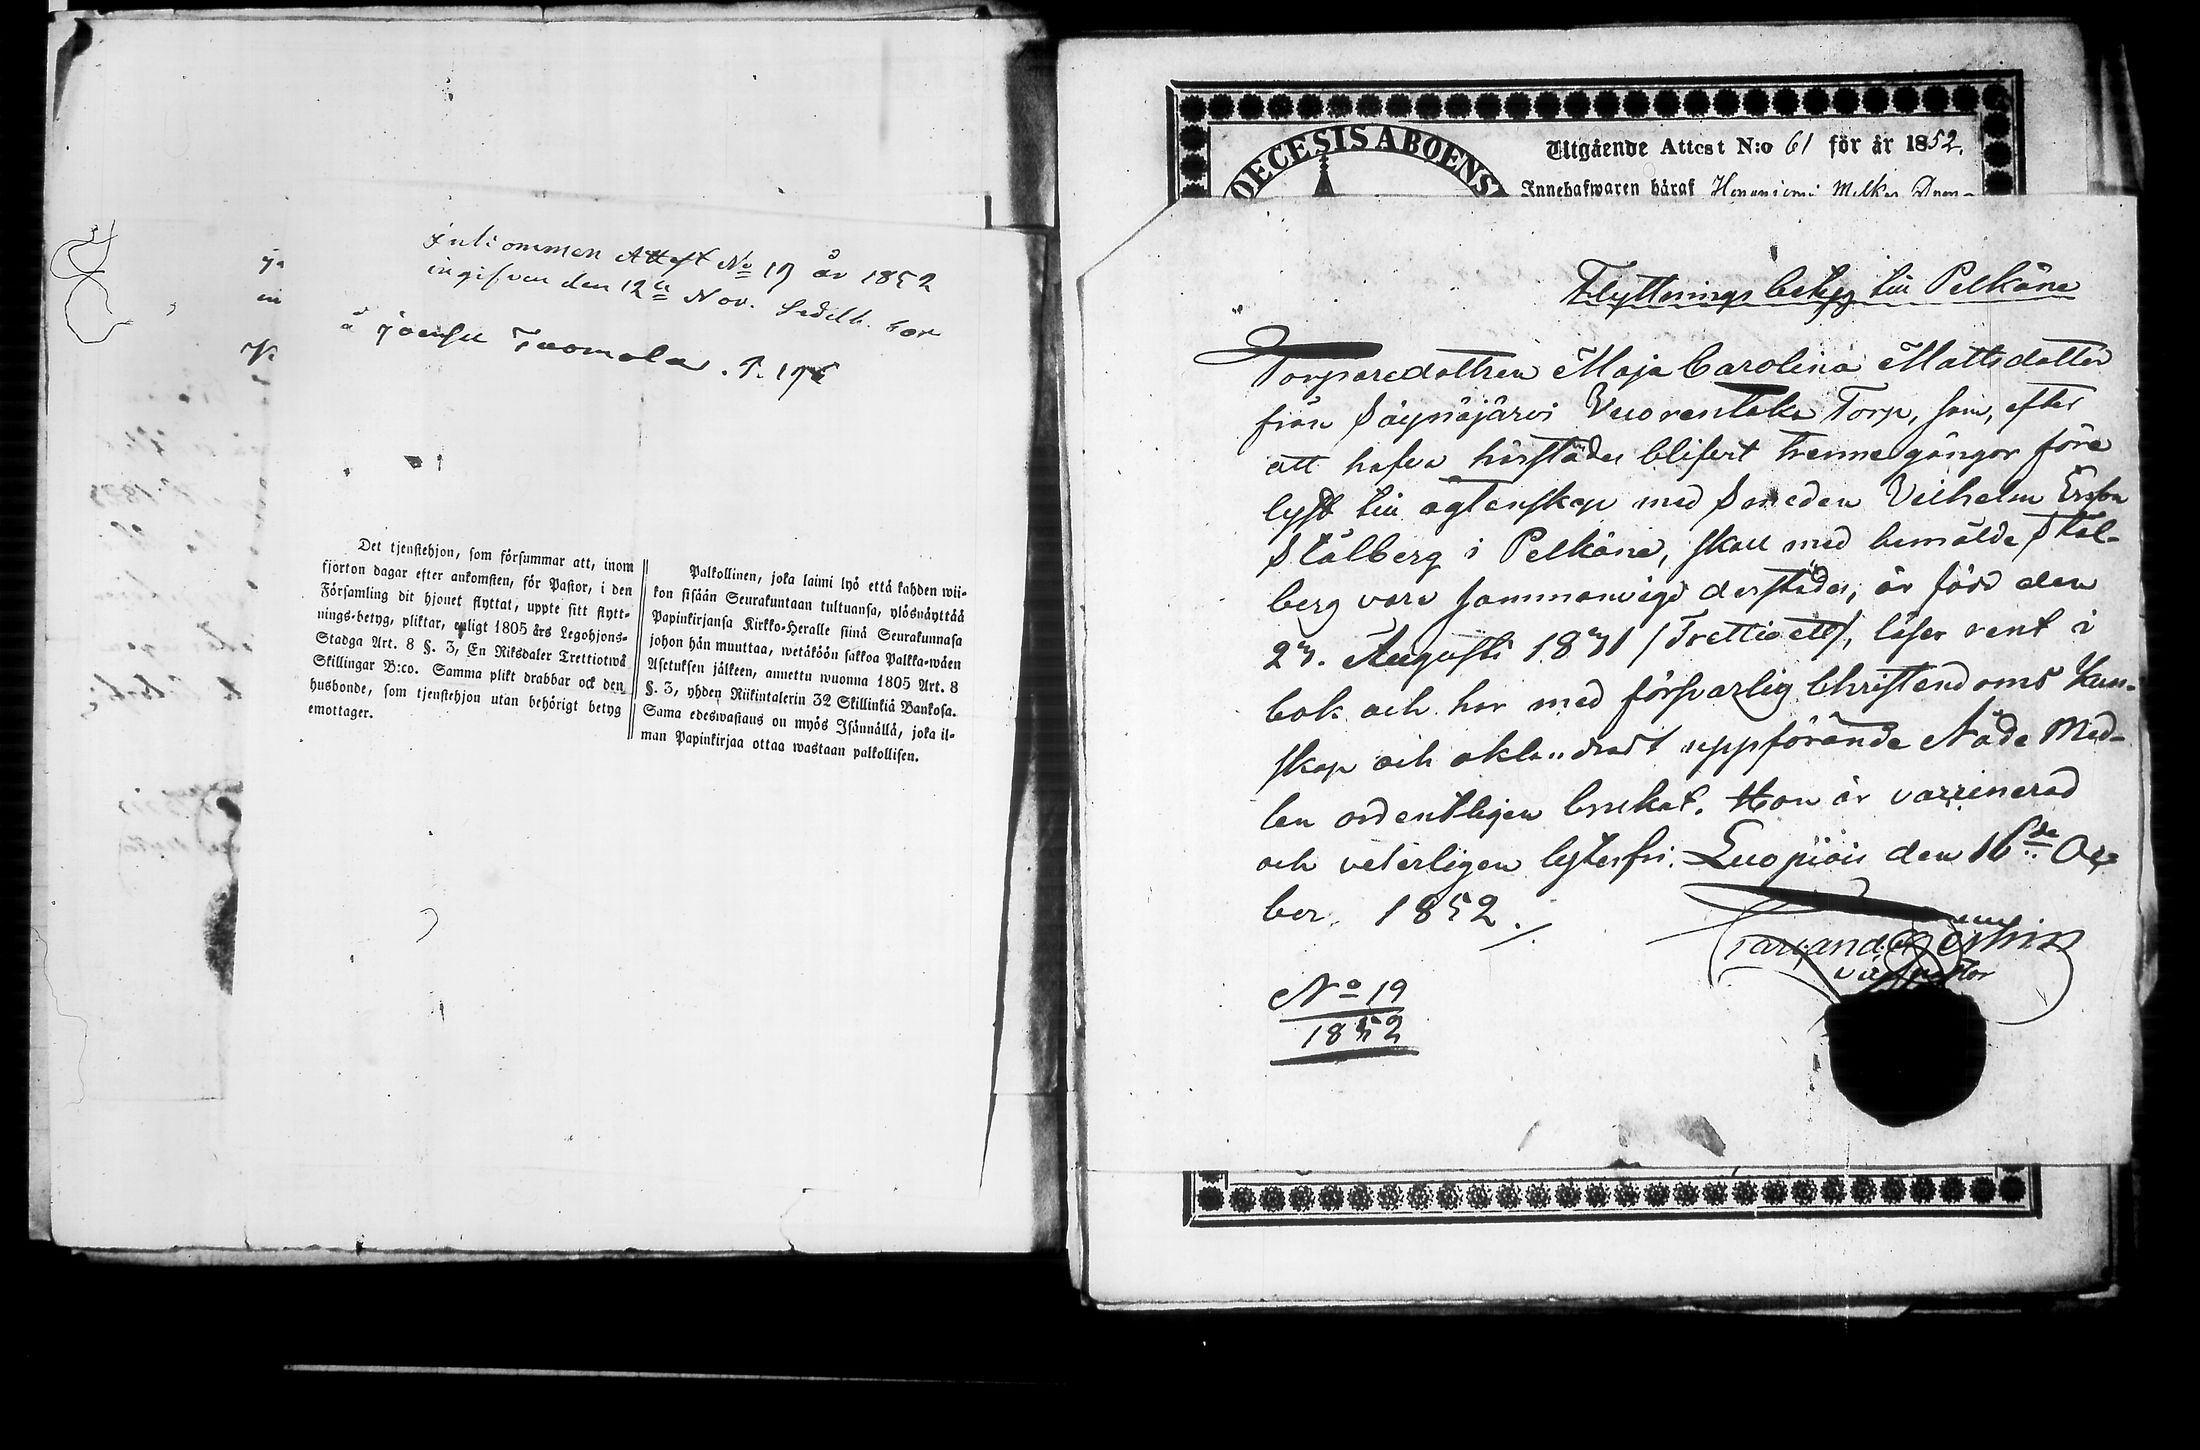 Inkommen Attest No 19 år 1852
ingifven den 12 Nov. Sedelh. bor
å Joensu Tuomola. P. 196
Det tjenstehjon, som försummar att, inom
fjorton dagar efter ankomsten, för Pastor, i den
Församling dit hjonet flyttat, uppte sitt flytt-
nings-betyg, pliktar, enligt 1805 års Legohjons-
Stadga Art. 8 §. 3, En Riksdaler Trettiotwå
Skillingar B:co. Samma plikt drabbar ock den
husbonde, som tjenstehjon utan behörigt betyg
emottager.
Palkollinen, joka laimi lyö että kahden wii-
kon sisään Seurakuntaan tultuansa, ylösnäyttää
Papinkirjansa Kirkko-Heralle siinä Seurakunnasa
johon hän muuttaa, wetäköön sakkoa Palkka-wäen
Asetuksen jälkeen, annettu wuonna 1805 Art. 8
§. 3, yhden Riikintalerin 32 Skillinkiä Bankosa.
Sama edeswastaus on myös Isännällä, joka il-
man Papinkirjaa ottaa wastaan palkollisen.
OECESIS ABOENS
Utgående Attest N:o 61 för år 1852.
Innehafwaren häraf
Flyttnings betyg till Pelkäne
Torparedottren Maja Carolina Mattsdotter
från Säynäjärvi Vuorentaka Torp, som, efter
att hafva härstädes blifvit trenne gångor före
lyst till ägtenskap med Smeden Vilhelm
Stålberg i Pelkäne, skall med bemälde Stål-
berg vara sammanvigd derstädes, är född den
23. Augusti 1831 (Trettio ett), läser rent i
bok och har med försvarlig Christendoms kun-
skap och oklandradt uppförande Nåde Med-
len ordentligen brukat. Hon är vaccinerad
och veterligen lytesfri. Luopiois den 16de Octo
ber 1852.
vice pastor
No 19
1852